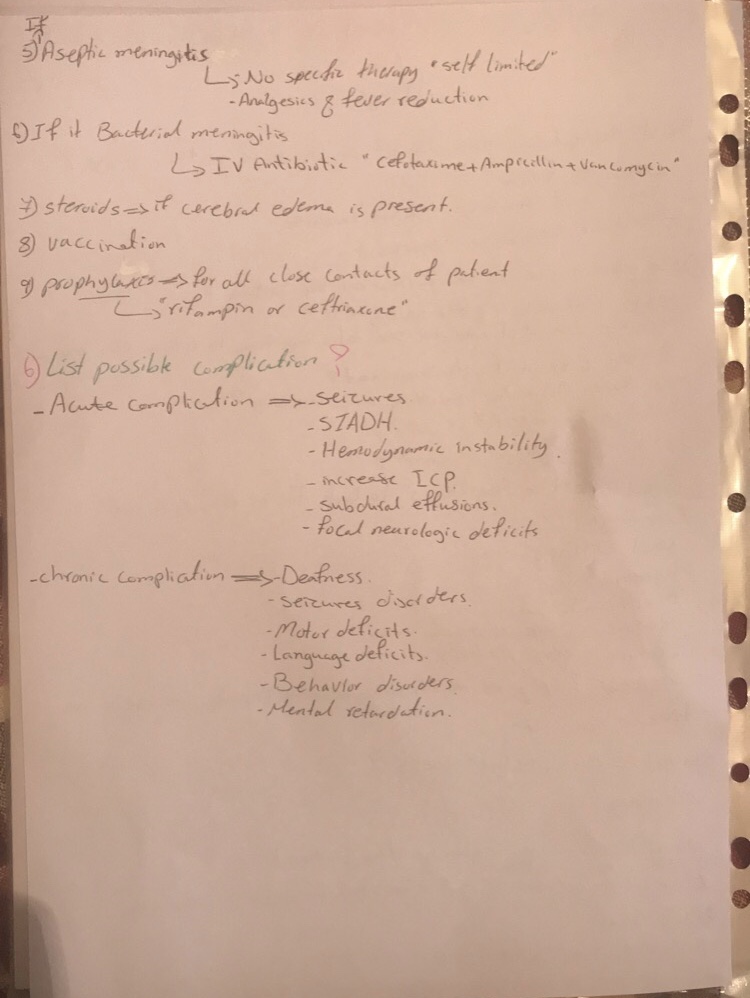 If
5) Aseptic meningitis
↳ No specific therapy "self limited"
- Analgesics & fever reduction
6) If it Bacterial meningitis
↳ IV Antibiotic "Cefotaxime + Ampicillin + Vancomycin"
7) steroids => if cerebral edema is present.
8) vaccination
9) prophylaxis => for all close contacts of patient
↳ "rifampin or ceftriaxone"
6) List possible complication ?
- Acute complication => - seizures
- SIADH.
- Hemodynamic instability.
- increase ICP.
- subdural effusions.
- focal neurologic deficits
- chronic complication => - Deafness.
- seizures disorders.
- Motor deficits.
- Language deficits.
- Behavior disorders.
- Mental retardation.